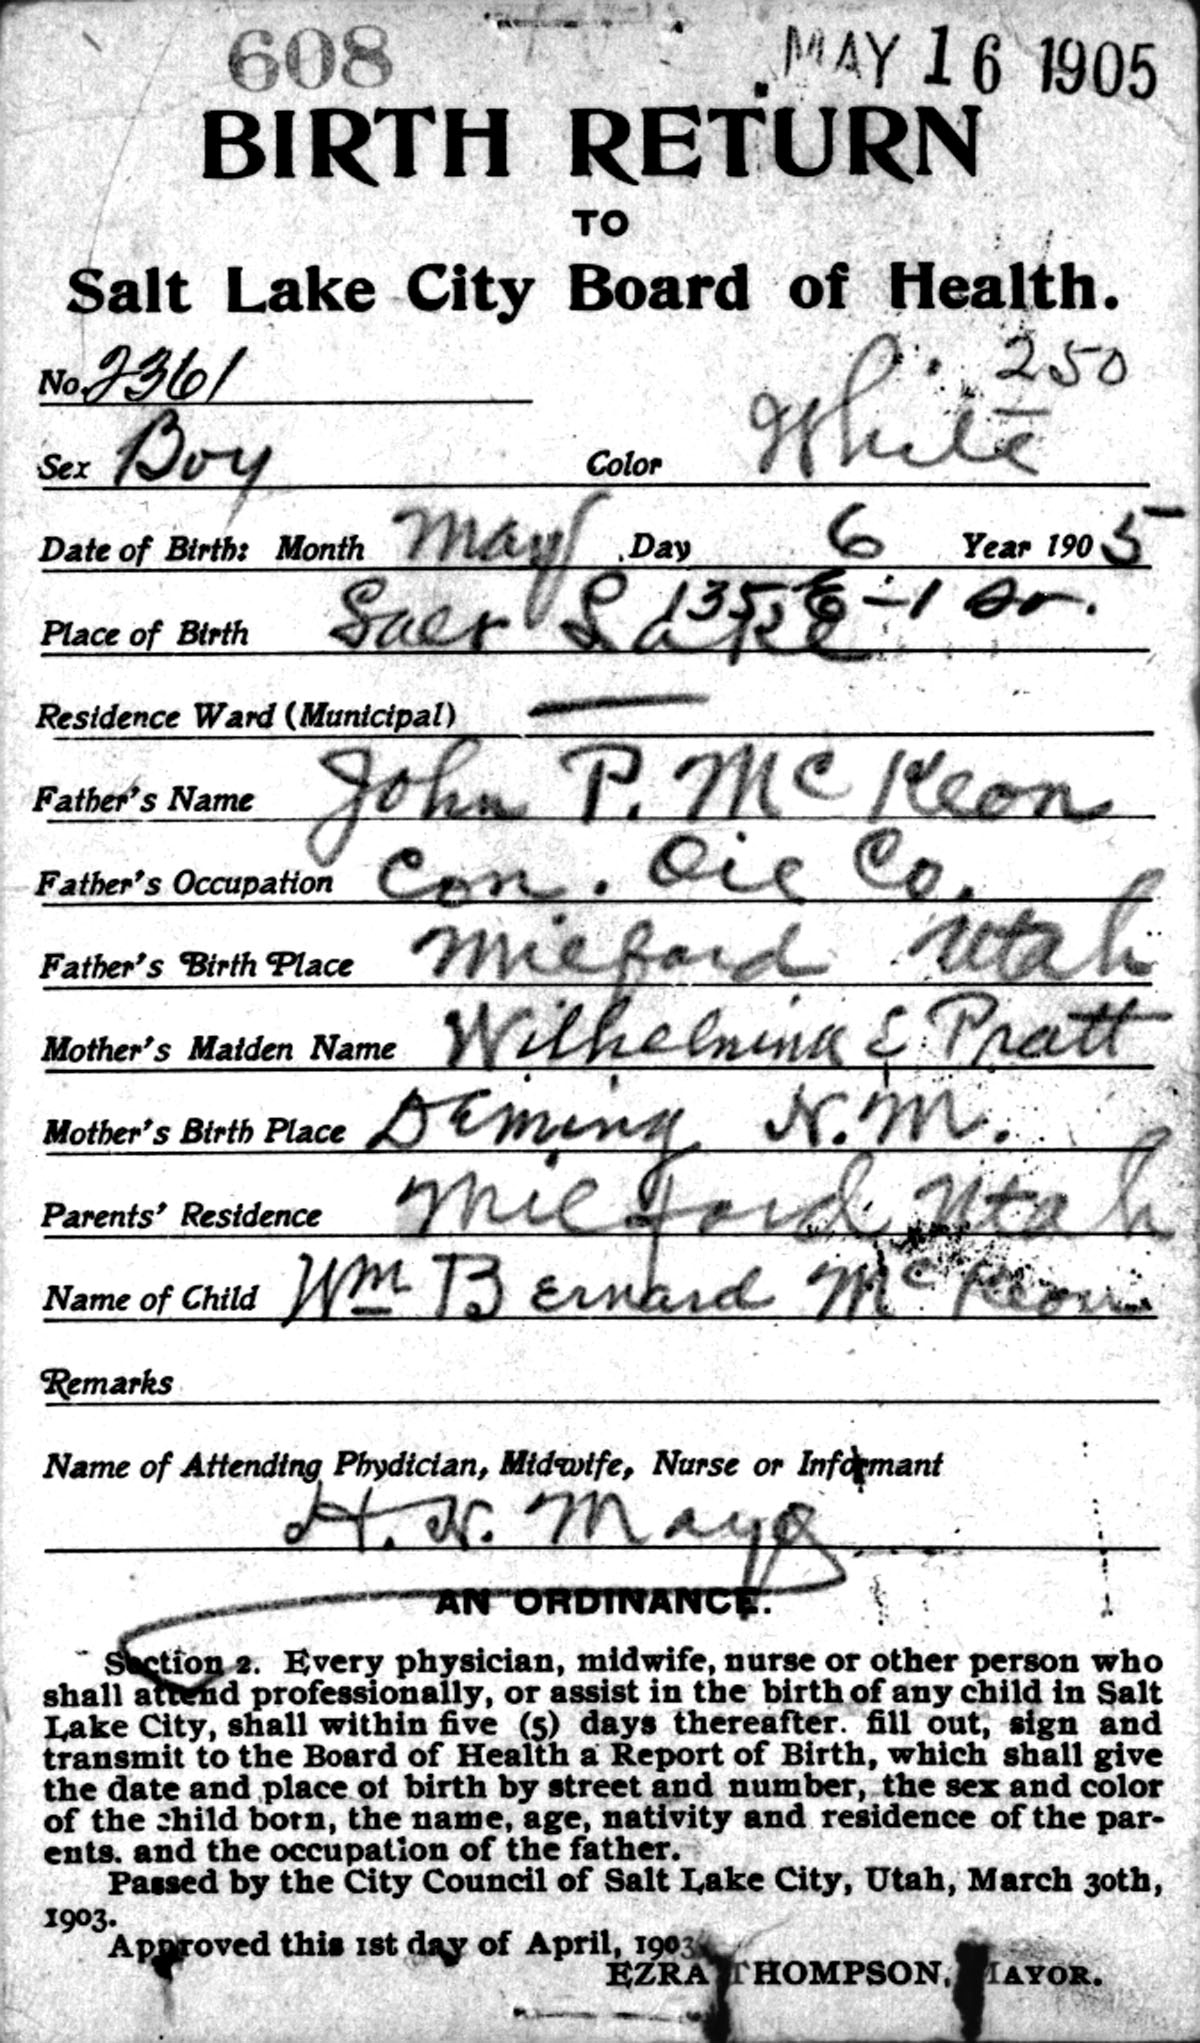 608 MAY 16 1905
BIRTH RETURN
TO
Salt Lake City Board of Health.
No. 2361 250
Sex Boy Color White
Date of Birth: Month May Day 6 Year 1905
135 E - 1 So.
Place of Birth Salt Lake
Residence Ward (Municipal) —
Father's Name John P. McKeon
Father's Occupation Con. Oil Co.
Father's Birth Place Milford Utah
Mother's Maiden Name Wilhelmina E Pratt
Mother's Birth Place Deming N.M.
Parents' Residence Milford Utah
Name of Child Wm Bernard McKeon
Remarks
Name of Attending Phydician, Midwife, Nurse or Informant
H. N. Mayo
AN ORDINANCE.
Section 2. Every physician, midwife, nurse or other person who
shall attend professionally, or assist in the birth of any child in Salt
Lake City, shall within five (5) days thereafter. fill out, sign and
transmit to the Board of Health a Report of Birth, which shall give
the date and place of birth by street and number, the sex and color
of the child born, the name, age, nativity and residence of the par-
ents. and the occupation of the father.
Passed by the City Council of Salt Lake City, Utah, March 30th,
1903.
Approved this 1st day of April, 1903
EZRA THOMPSON, MAYOR.